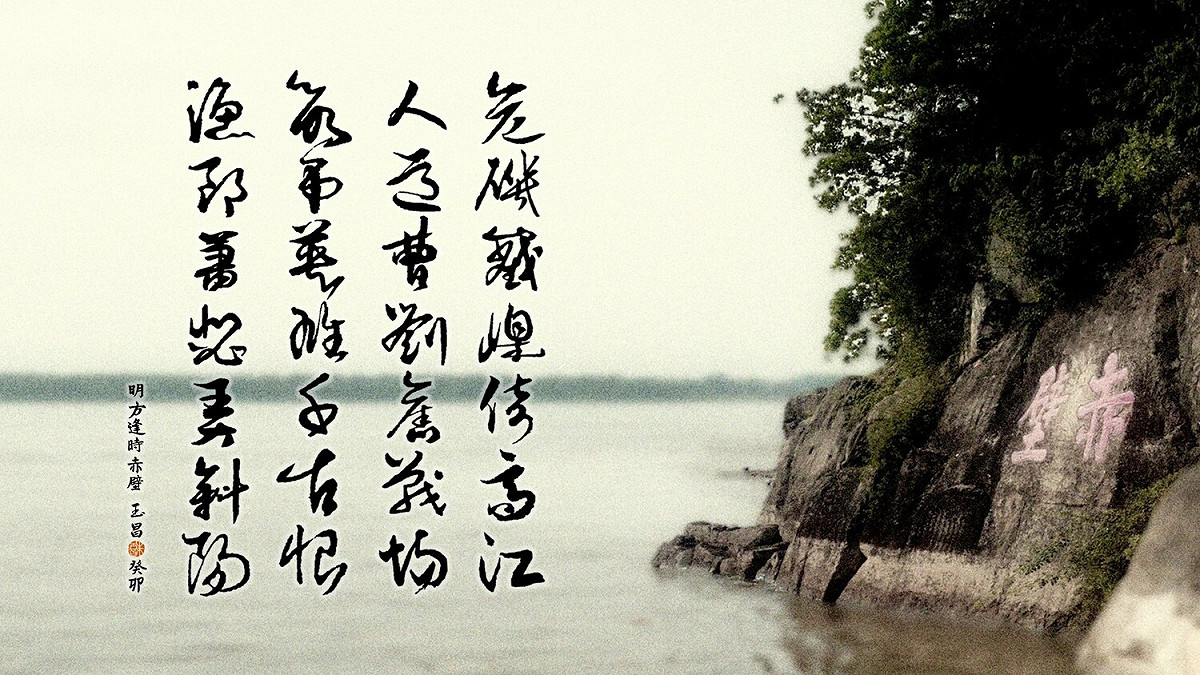 危磯巀嵲倚高江
人道曹劉舊戰場
欲弔英雄千古恨
漁郎蕭瑟弄斜陽
明方逢時赤壁 玉昌 癸卯
赤壁